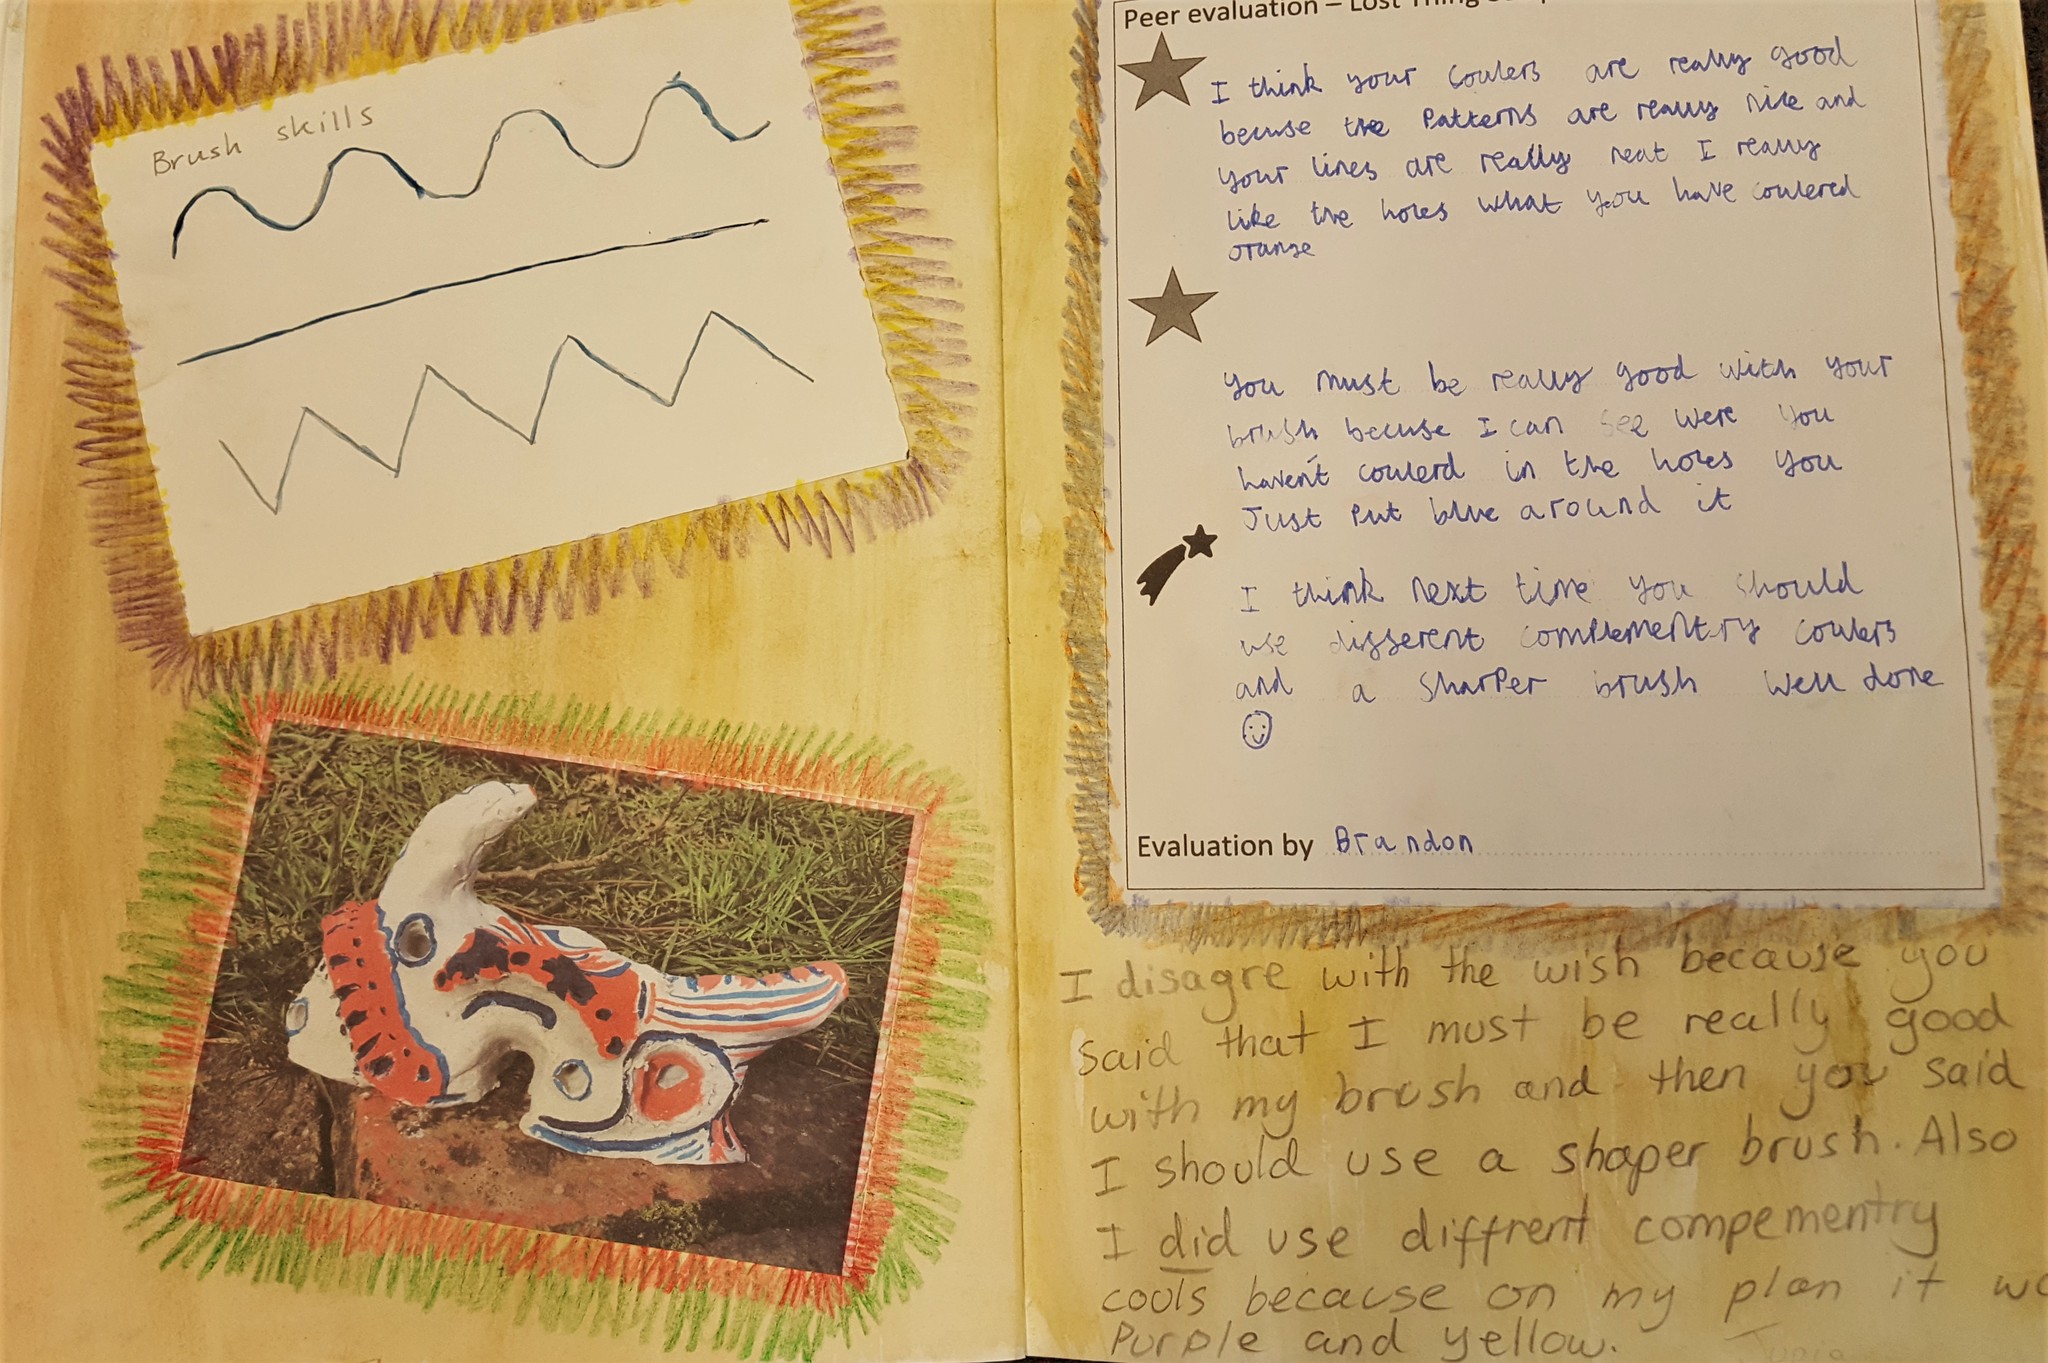 Brush skills
Peer evaluation – Lost Thing
I think your coulers are really good
becuse the Patterns are really nice and
your lines are really neat I really
like the holes what you have coulered
orange
you must be really good with your
brush becuse I can see were you
havent coulerd in the holes you
Just Put blue around it
I think next time you should
use different complementry coulers
and a sharper brush well done
Evaluation by Brandon
I disagre with the wish because you
said that I must be really good
with my brush and then you said
I should use a shaper brush. Also
I did use diffrent compementry
couls because on my plan it
Purple and yellow.